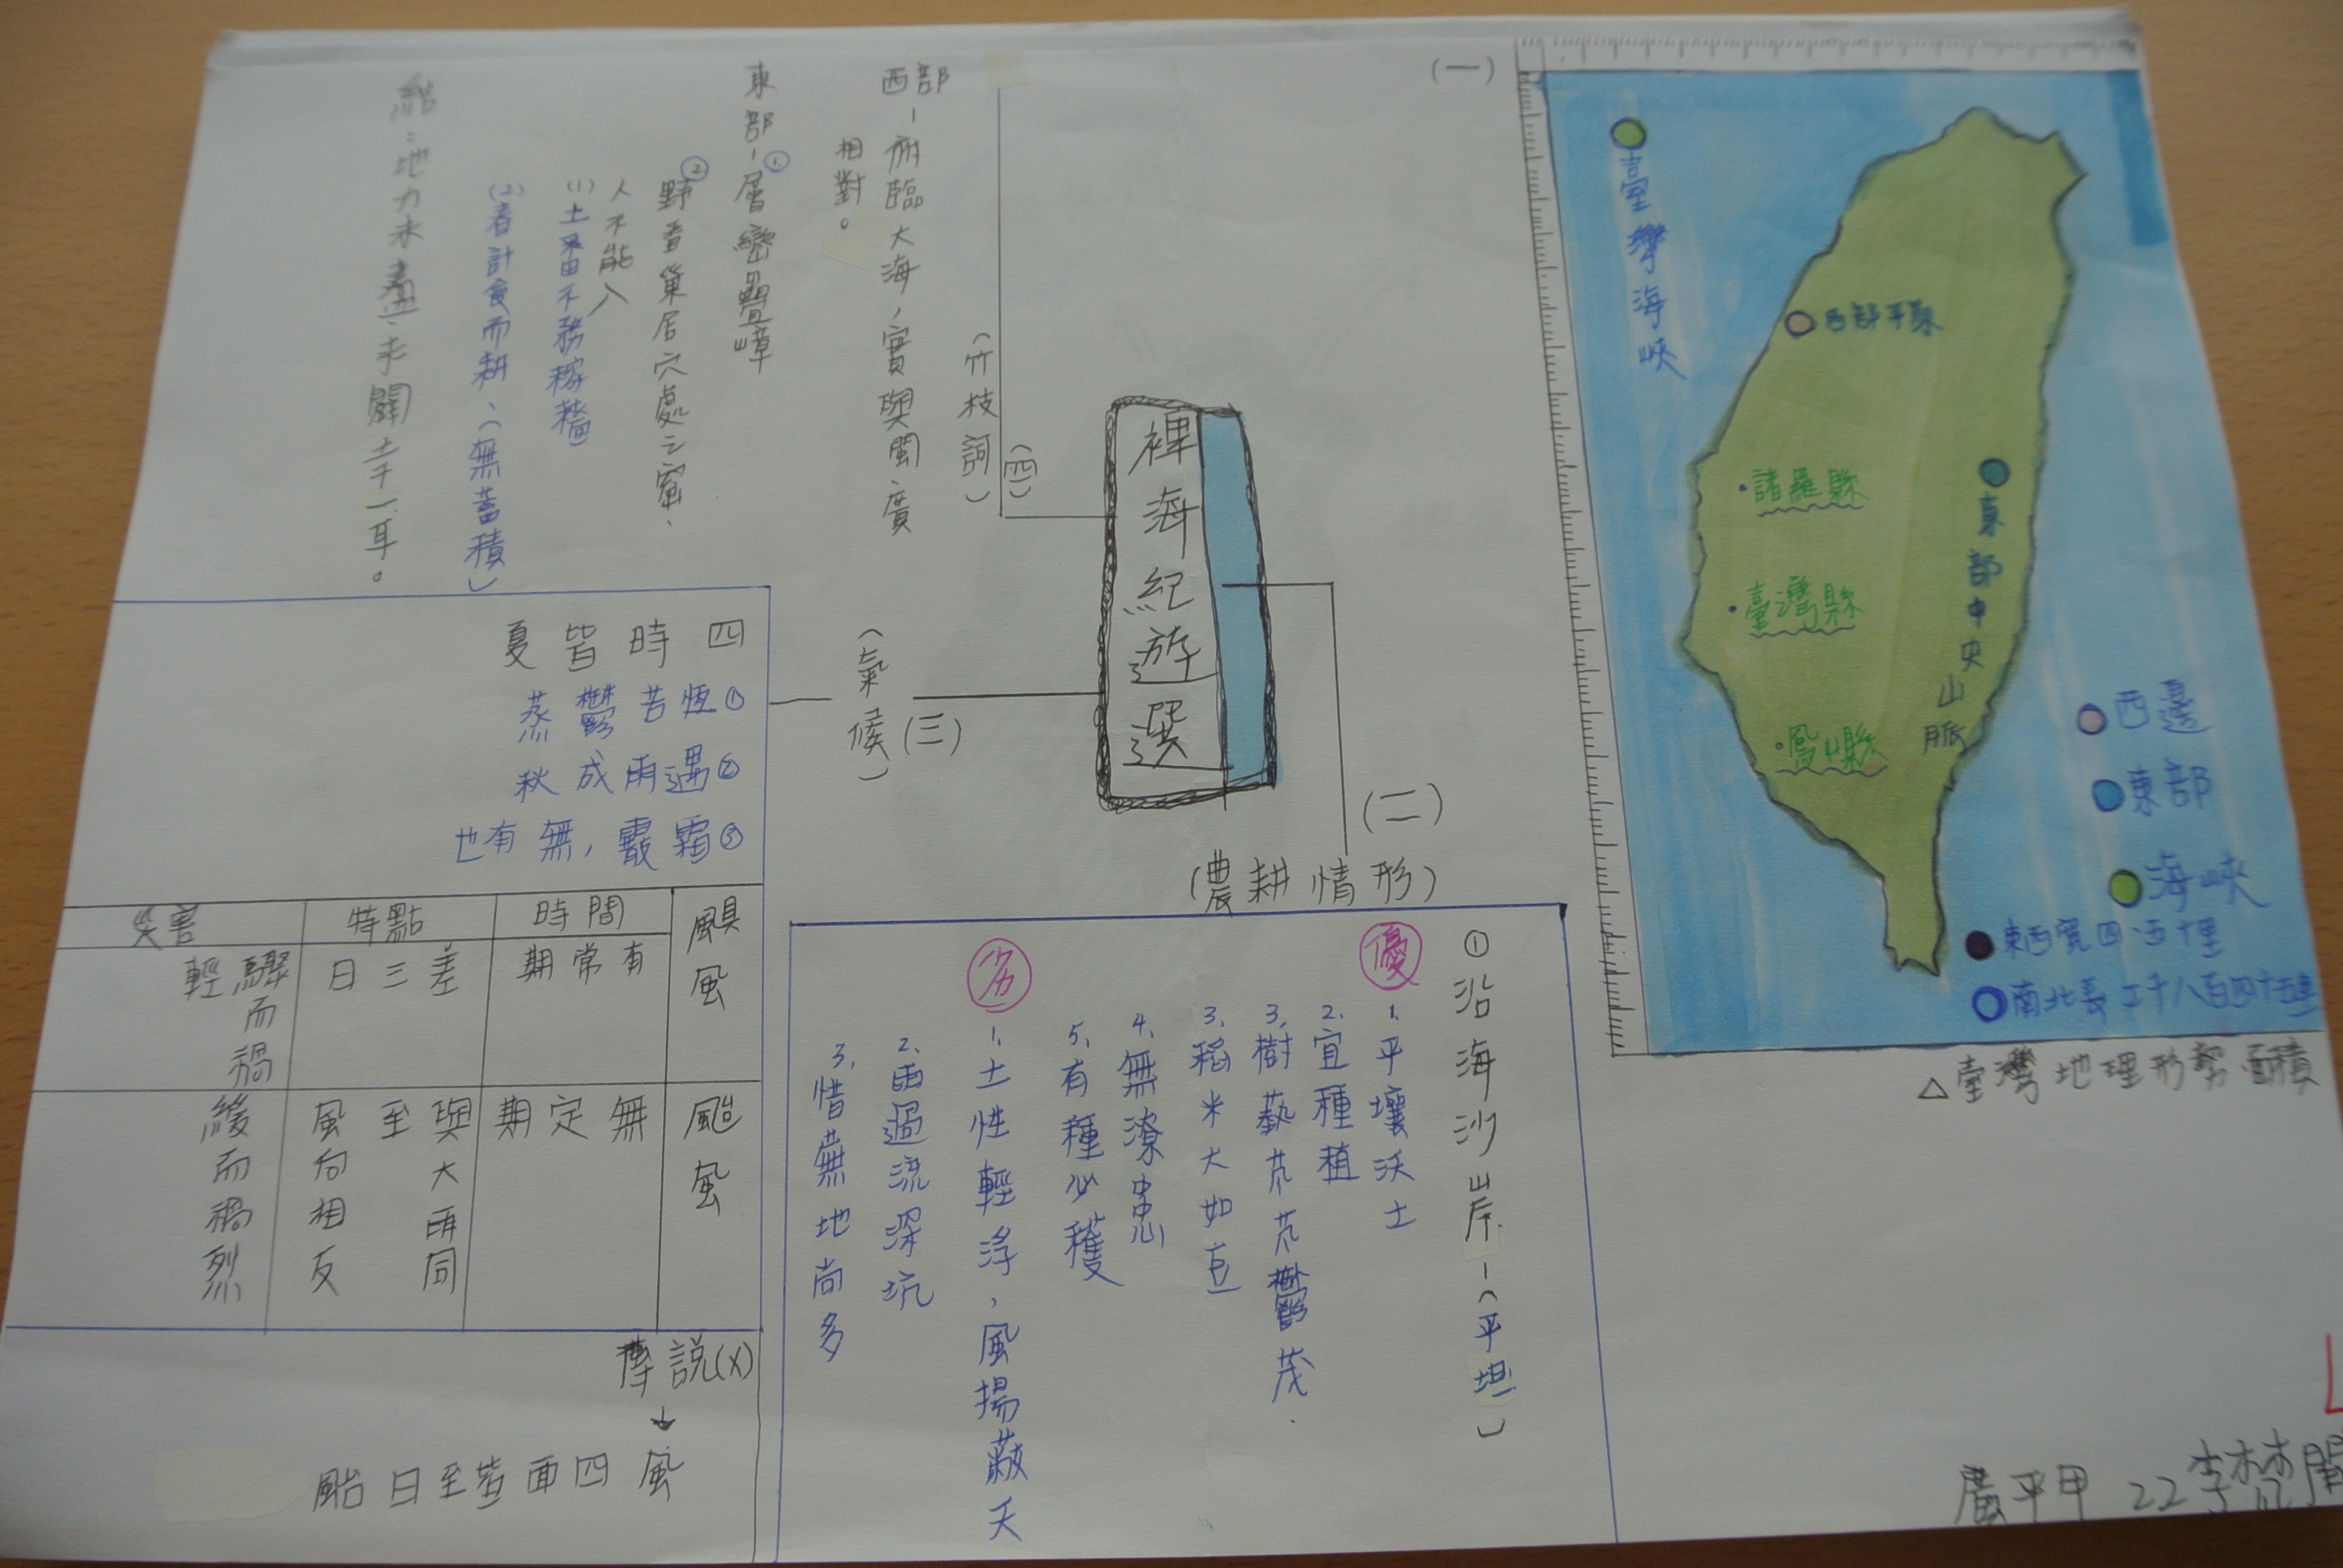 (一)
臺灣海峽
西部平原
諸羅縣
臺灣縣
鳳山縣
東部中央山脈
西邊
東部
海峽
東西寬四、五十里
南北長二千八百四十五里
△臺灣地理形勢、面積
裨海紀遊選
(二)
(農耕情形)
①沿海沙岸-(平坦)
優
1.平壤沃土
2.宜種植
3.樹藝芃芃鬱茂.
3.稻米大如豆
4.無潦患
5.有種必穫
劣
1.土性輕浮,風揚蔽天
2.雨過流深坑
3.惜蕪地尚多
(三)
(氣候)
四時皆夏
①恆苦鬱蒸
②遇雨成秋
③霜霰,無有也
颶風
時間
特點
災害
有常期
差三日
驟而禍輕
颱風
無定期
與大雨同至
風向相反
緩而禍烈
傳說(X)
風四面皆至曰颱
(四)
(竹枝詞)
西部-俯臨大海,實與閩廣
相對。
東部-①層巒疊嶂
②野番巢居穴處之窟、
人不能入
(1)土番不務稼穡
(2)春計食而耕、(無蓄積)
結:地力未盡、求闢土一耳。
廣平甲 22李梵